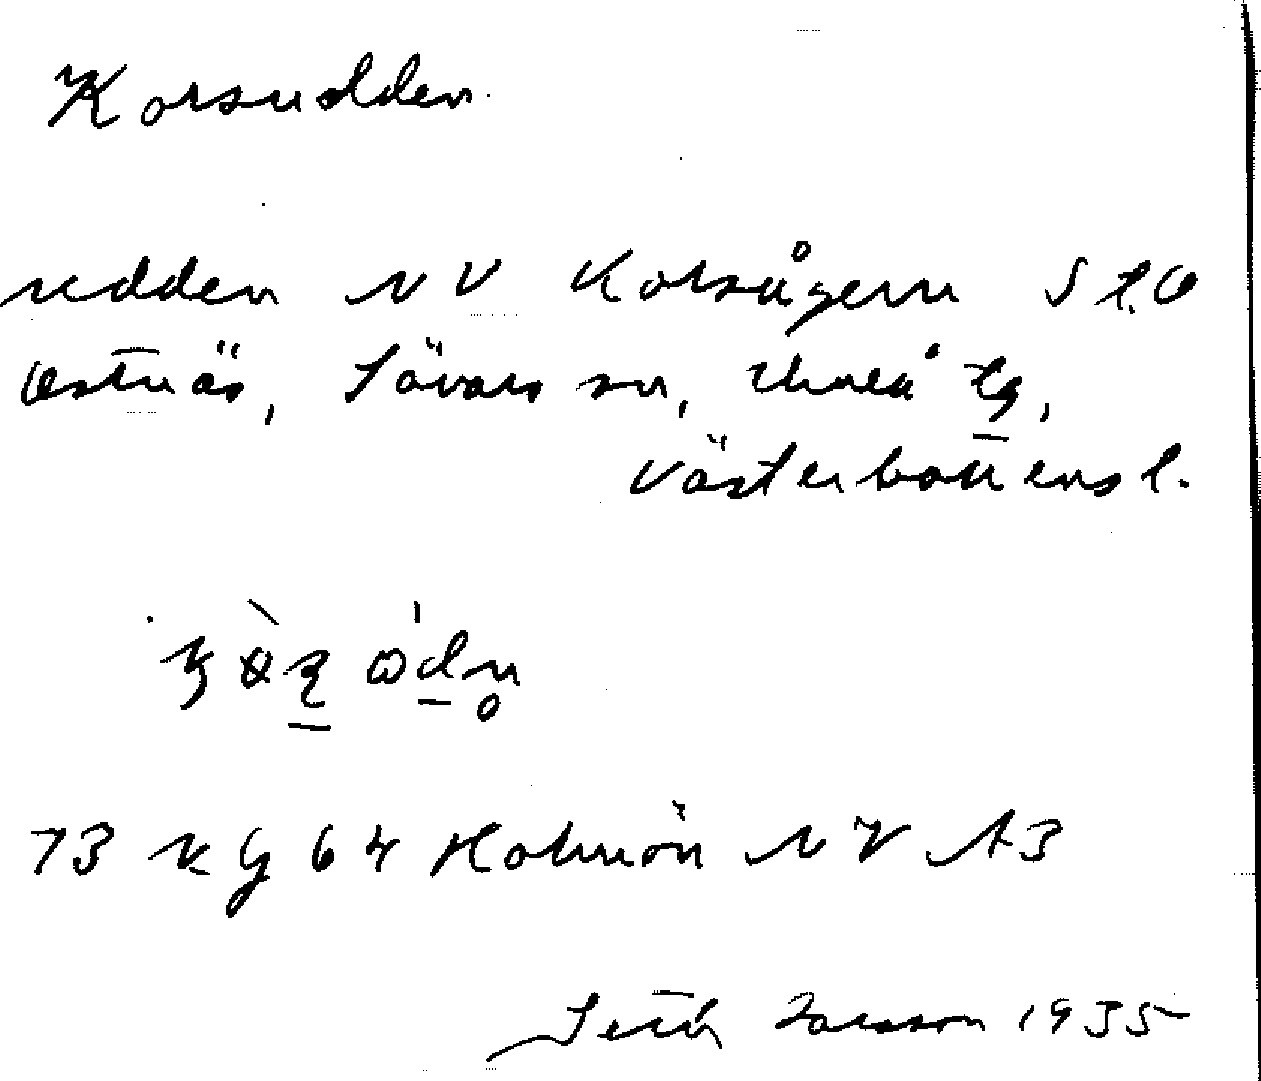 Korsudden
udden NV Korsågern S t.O
Ostnäs, Sävars sn, Umeå tg,
Västerbottens l.
73 KG 64 Holmön NV A3
Seth Larsson 1935